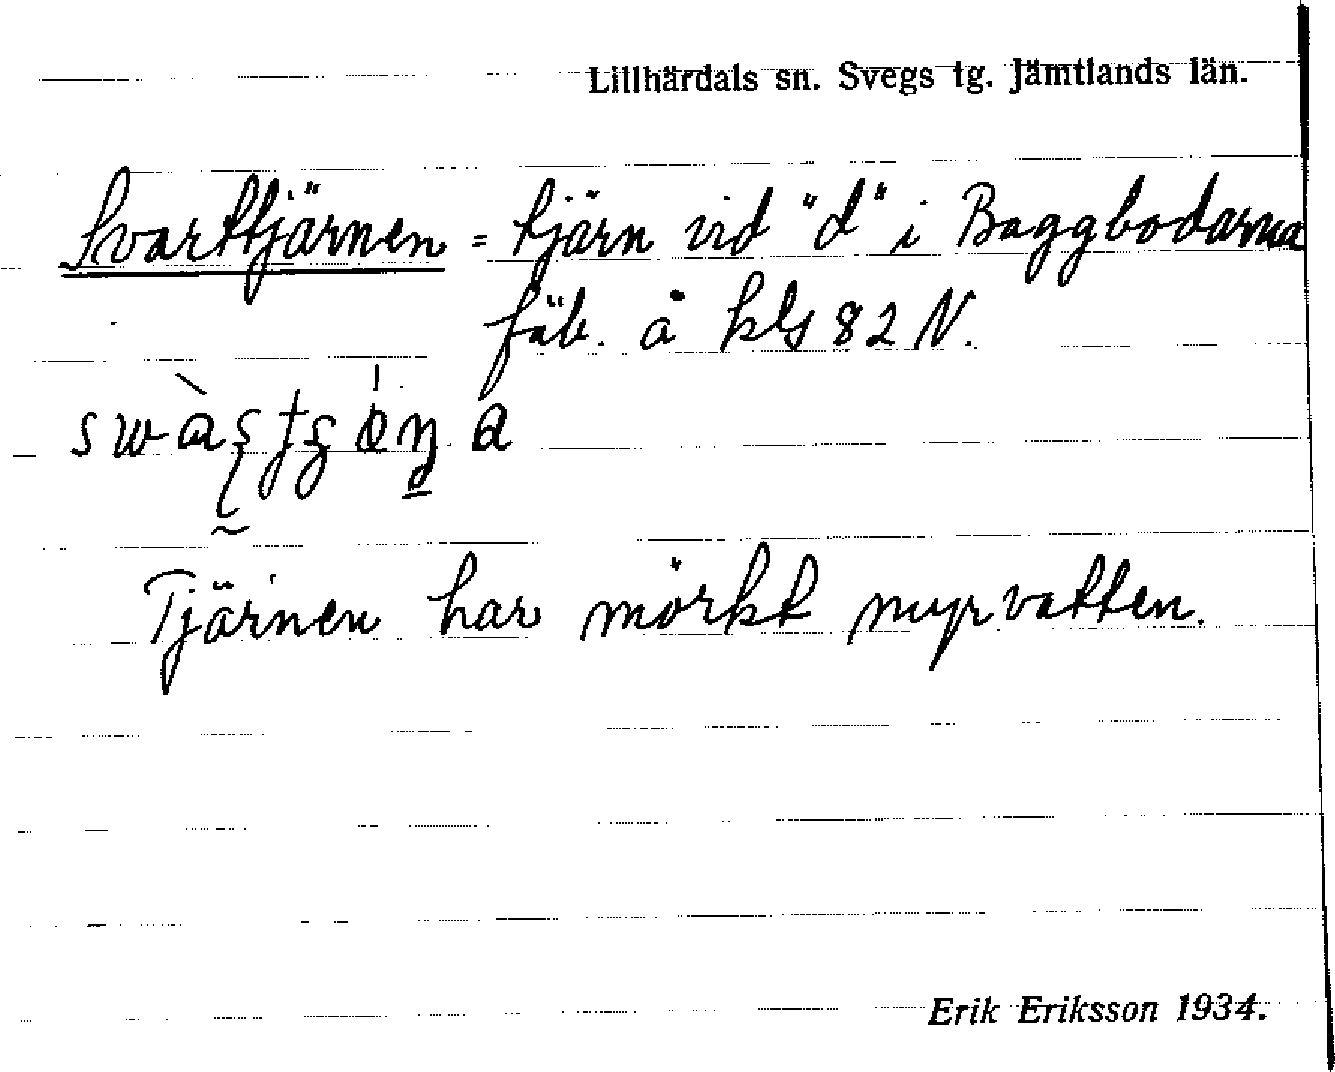 Lillhärdals sn. Svegs tg. Jämtlands län.
Svarttjärnen = tjärn vid "d" i Baggbodarna
fäb. å kbl 82 N.
Tjärnen har mörkt myrvatten.
Erik Eriksson 1934.